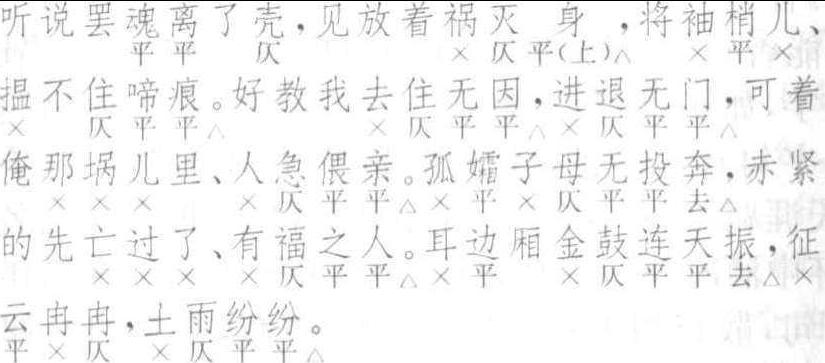 听说罢魂离了壳，见放着祸灭身，将袖梢儿、
平平 仄 × 仄平（上）△ × 平 ×
揾不住啼痕。好教我去住无因，进退无门，可着
× 仄平平△ × 仄平平△× 仄平平△
俺那埚儿里、人急偎亲。孤孀子母无投奔，赤紧
× × × × 仄平平△× 平 × 仄平平去△
的先亡过了、有福之人。耳边厢金鼓连天振，征
× × × × 仄平平△× 平 × 仄平平去△×
云冉冉，土雨纷纷。
平 × 仄 × 仄平平△